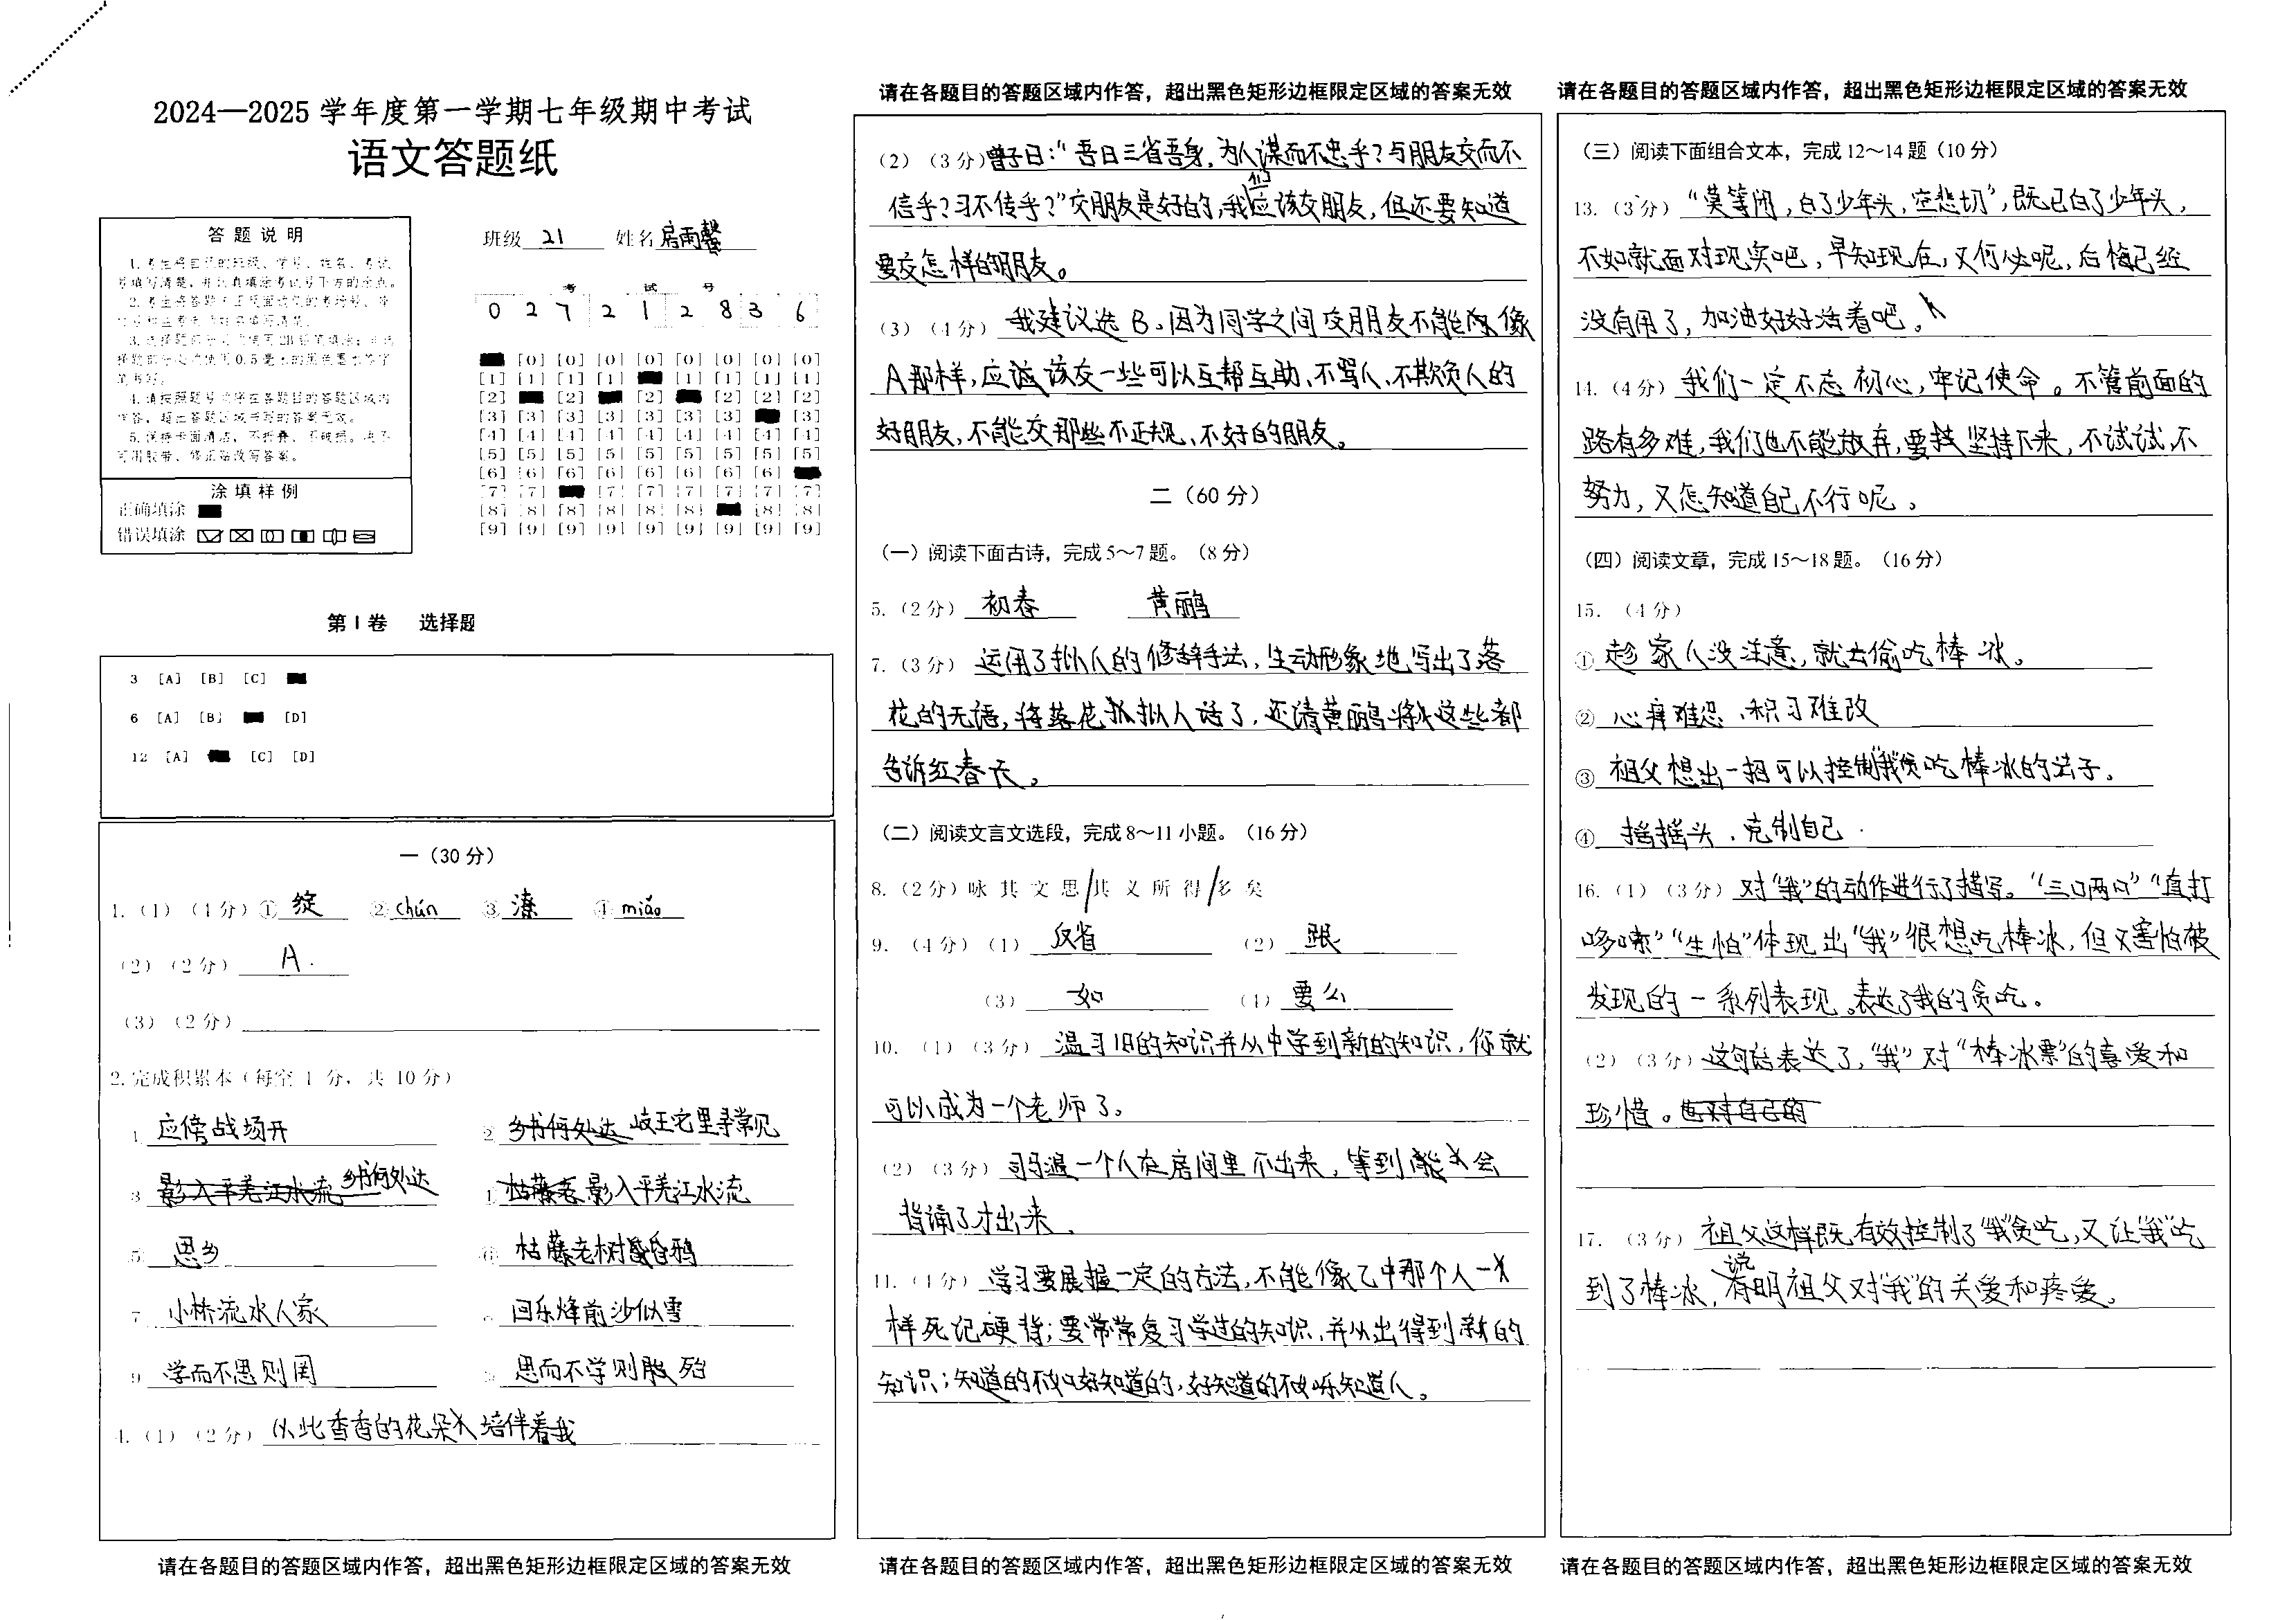 2024—2025 学年度第一学期七年级期中考试
语文答题纸
答 题 说 明
涂 填 样 例
正确填涂
错误填涂
班级 21 姓名 房雨馨
考 试 号
0 2 7 2 1 2 8 3 6
[0] [0] [0] [0] [0] [0] [0] [0]
[1] [1] [1] [1] [1] [1] [1] [1]
[2] [2] [2] [2] [2] [2]
[3] [3] [3] [3] [3] [3] [3] [3]
[4] [4] [4] [4] [4] [4] [4] [4] [4]
[5] [5] [5] [5] [5] [5] [5] [5] [5]
[6] [6] [6] [6] [6] [6] [6] [6]
[7] [7] [7] [7] [7] [7] [7] [7]
[8] [8] [8] [8] [8] [8] [8] [8]
[9] [9] [9] [9] [9] [9] [9] [9] [9]
第 I 卷 选择题
3 [A] [B] [C]
6 [A] [B] [D]
12 [A] [C] [D]
一（30 分）
1.（1）（4 分）① 绽 ② chún ③ 漆 ④ miǎo
（2）（2 分） A.
（3）（2 分）
2.完成积累本（每空 1 分，共 10 分）
1 应傍战场开 2 乡书何处达 岐王宅里寻常见
3 影入平羌江水流 乡书何处达 4 枯藤老 影入平羌江水流
5 思乡 6 枯藤老树昏鸦
7 小桥流水人家 8 回乐烽前沙似雪
9 学而不思则罔 10 思而不学则殆
4.（1）（2 分） 从此香香的花朵 培伴着我
请在各题目的答题区域内作答，超出黑色矩形边框限定区域的答案无效
请在各题目的答题区域内作答，超出黑色矩形边框限定区域的答案无效
（2）（3 分）曾子曰：“吾日三省吾身，为人谋而不忠乎？与朋友交而不
信乎？习不传乎？”交朋友是好的，我们应该交朋友，但还要知道
要交怎样的朋友。
（3）（4 分） 我建议选 B。因为同学之间交朋友不能像
A那样，应该该交一些可以互帮互助、不骂人、不欺负人的
好朋友，不能交那些不正规、不好的朋友。
二（60 分）
（一）阅读下面古诗，完成 5～7 题。（8 分）
5.（2 分） 初春 黄鹂
7.（3 分） 运用了拟人的修辞手法，生动形象地写出了落
花的无语，将落花拟人话了，还请黄鹂将这些都
告诉红春天。
（二）阅读文言文选段，完成 8～11 小题。（16 分）
8.（2 分）咏 其 文 思/其 义 所 得/多 矣
9.（4 分）（1） 反省 （2） 跟
（3） 如 （4） 要么
10.（1）（3 分） 温习旧的知识并从中学到新的知识，你就
可以成为一个老师了。
（2）（3 分）司马温一个人在房间里不出来，等到能 会
背诵了才出来
11.（4 分） 学习要展握一定的方法，不能像乙中那个人一
样死记硬背；要常常复习学过的知识，并从出得到新的
知识；知道的不如好知道的，好知道的不如乐知道人。
请在各题目的答题区域内作答，超出黑色矩形边框限定区域的答案无效
请在各题目的答题区域内作答，超出黑色矩形边框限定区域的答案无效
（三）阅读下面组合文本，完成 12～14 题（10 分）
13.（3 分） “莫等闲，白了少年头，空悲切”，既已白了少年头，
不如就面对现实吧，早知现在，又何必呢，后悔已经
没有用了，加油好好活着吧。
14.（4 分） 我们一定不忘初心，牢记使命。不管前面的
路有多难，我们也不能放弃，要 坚持下来，不试试，不
努力，又怎知道自己不行呢。
（四）阅读文章，完成 15～18 题。（16 分）
15.（4 分）
① 趁家人没注意，就去偷吃棒冰。
② 心痒难忍、积习难改
③ 祖父想出一招可以控制“我”贪吃棒冰的法子。
④ 摇摇头，克制自己.
16.（1）（3 分） 对“我”的动作进行了描写。“三口两口”“直打
哆嗦”“生怕”体现出“我”很想吃棒冰，但又害怕被
发现的一系列表现。表达了我的贪吃。
（2）（3 分）这句话表达了，“我”对“棒冰票”的喜爱和
珍惜。也对自己的
17.（3 分） 祖父这样既有效控制了“我”贪吃，又让“我”吃
到了棒冰，说有明祖父对“我”的关爱和疼爱。
请在各题目的答题区域内作答，超出黑色矩形边框限定区域的答案无效